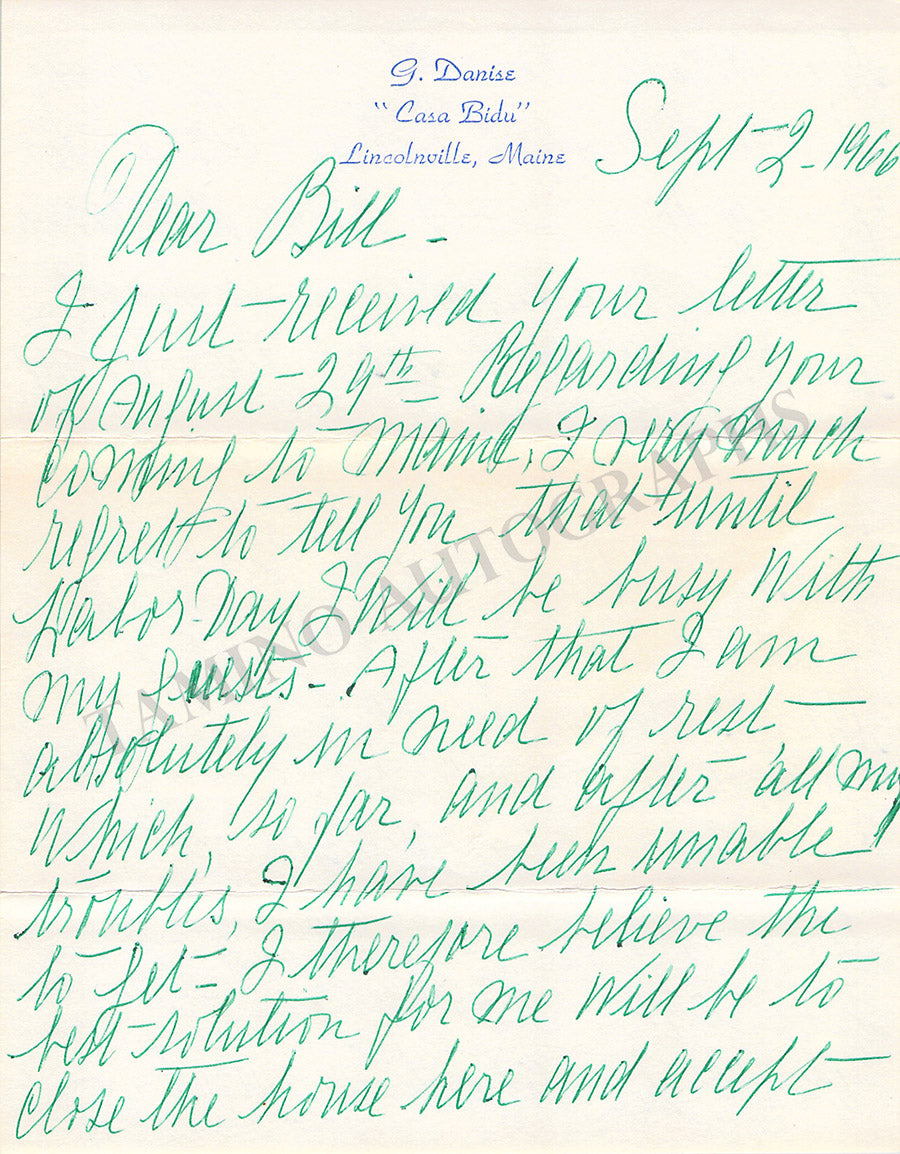 G. Danise
"Casa Bidu"
Lincolnville, Maine
Sept-2-1966
Dear Bill-
I just received your letter
of August 29th Regarding your
coming to Maine, I very much
regret to tell you that until
Labor-Day I will be busy with
my guests- After that I am
absolutely in need of rest-
which, so far, and after all my
troubles, I have been unable
to get- I therefore believe the
best solution for me will be to
close the house here and accept
TAMINO AUTOGRAPHS